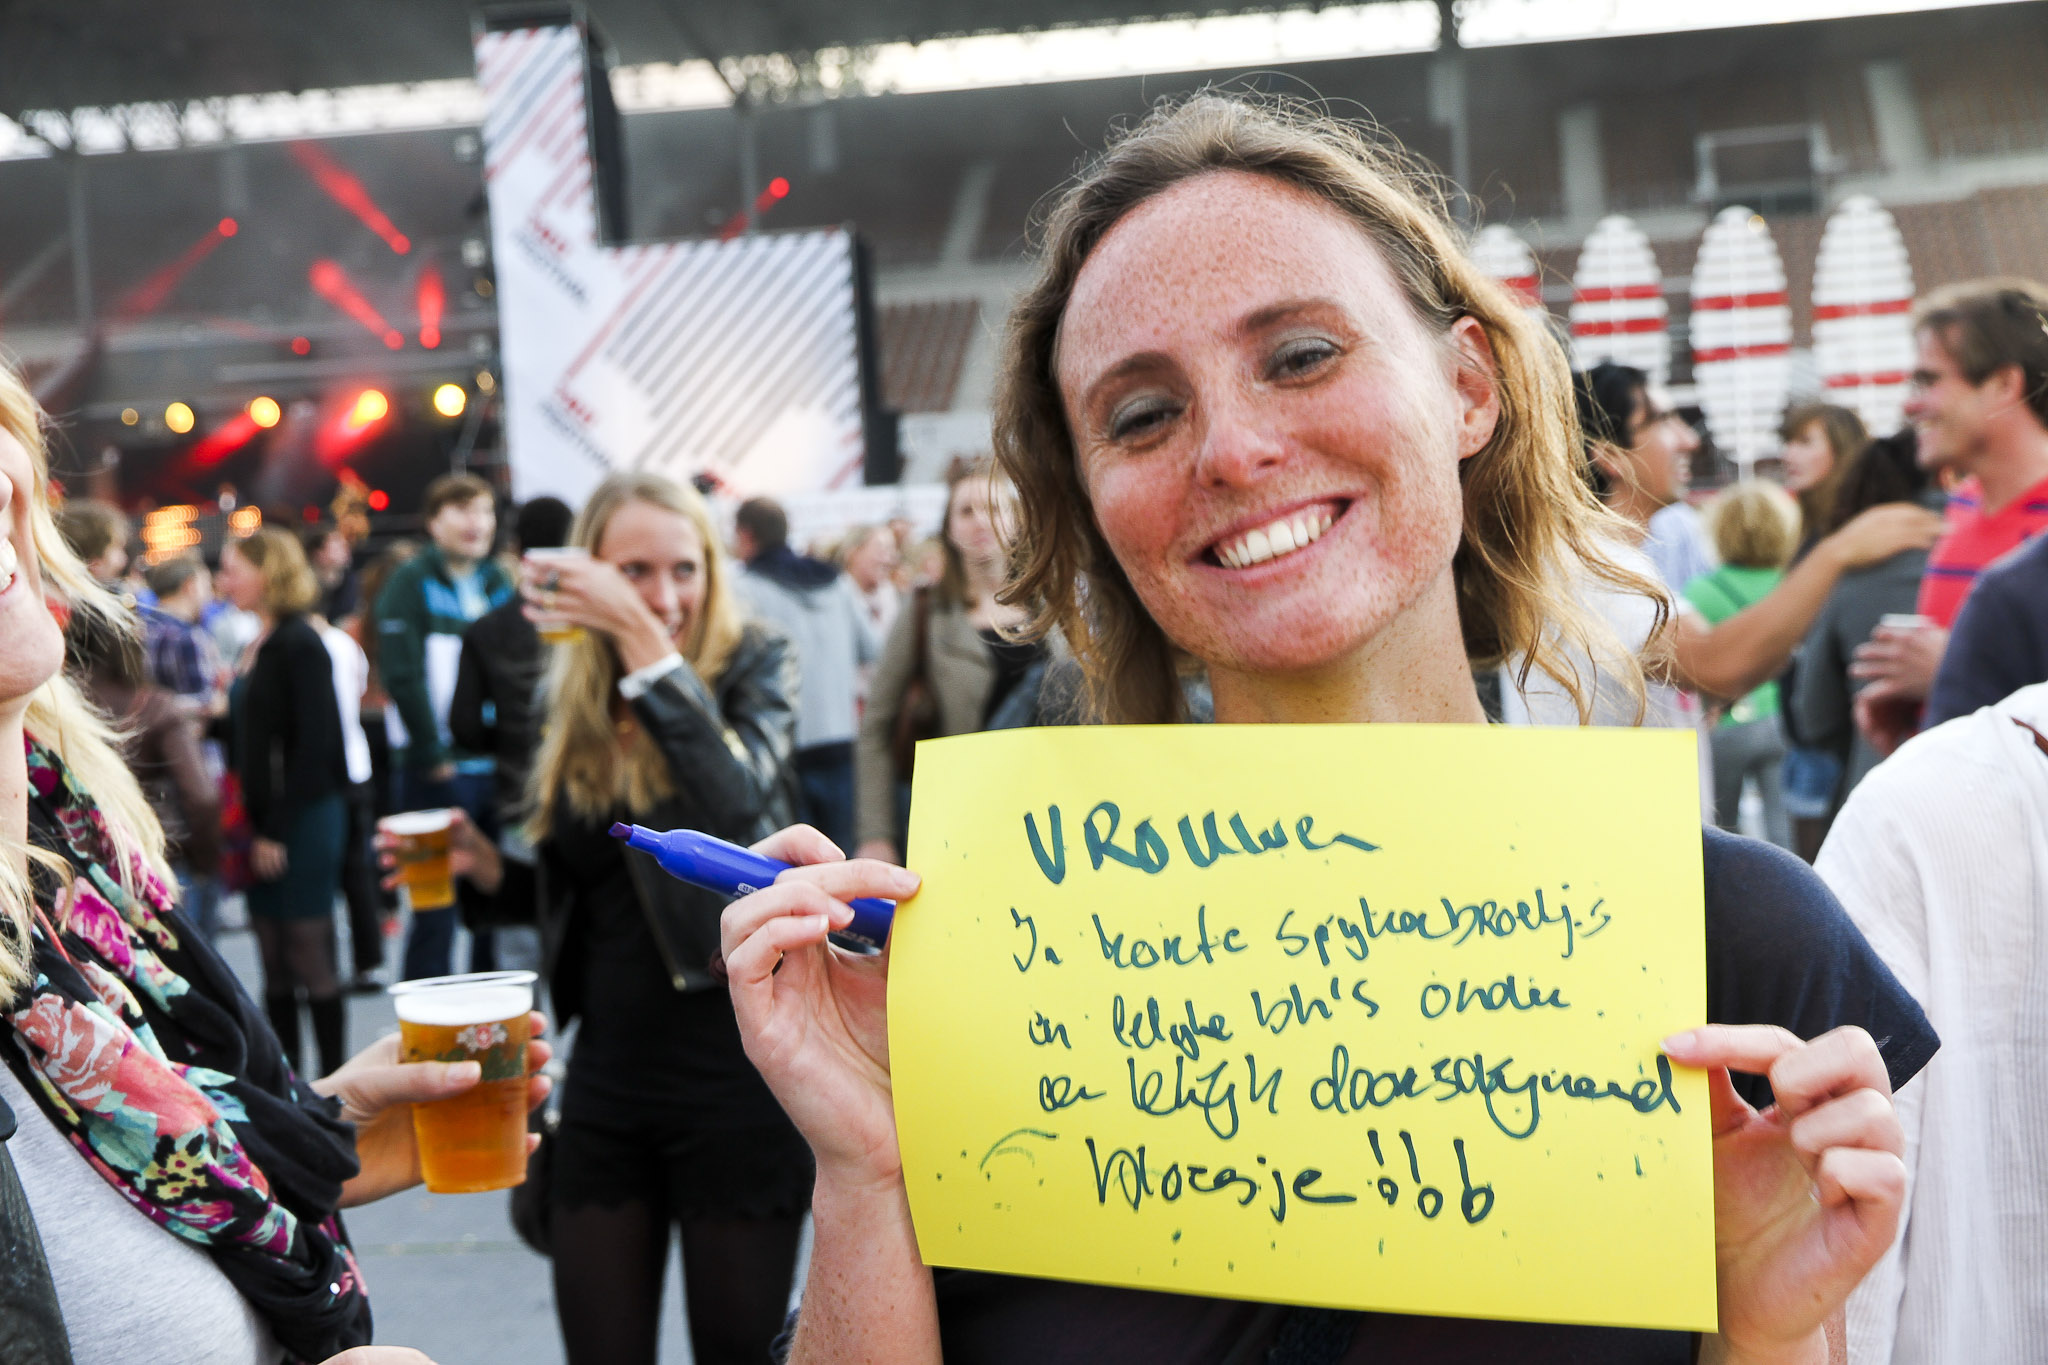 VROUWEN
In korte spijkerbroekjes
in lelijke bh's onder
een lelijk doorschijnend
bloesje!!!